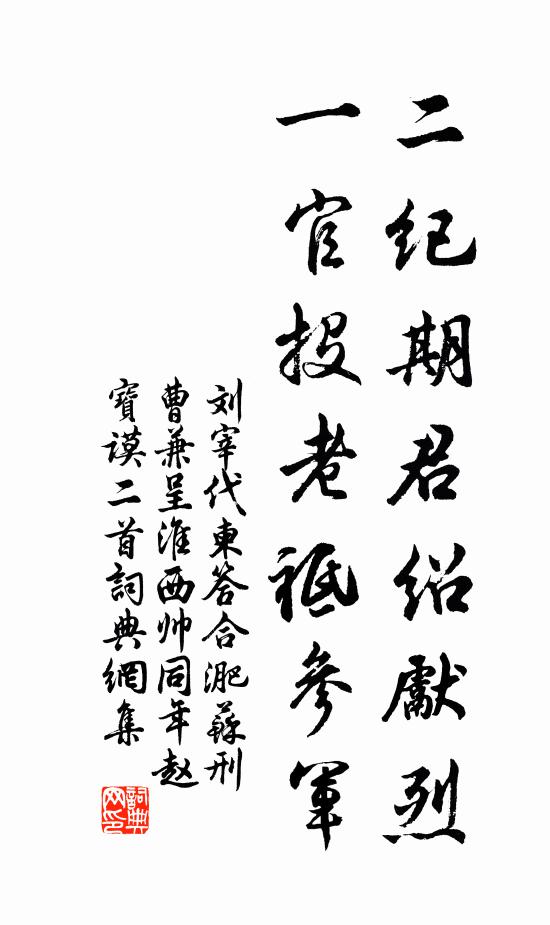 二紀期君紹獻烈
一官投老祗參軍
刘宰代東答合淝蘇刑
曹兼呈淮西帅同年赵
寶谟二首詞典網集
詞典网印